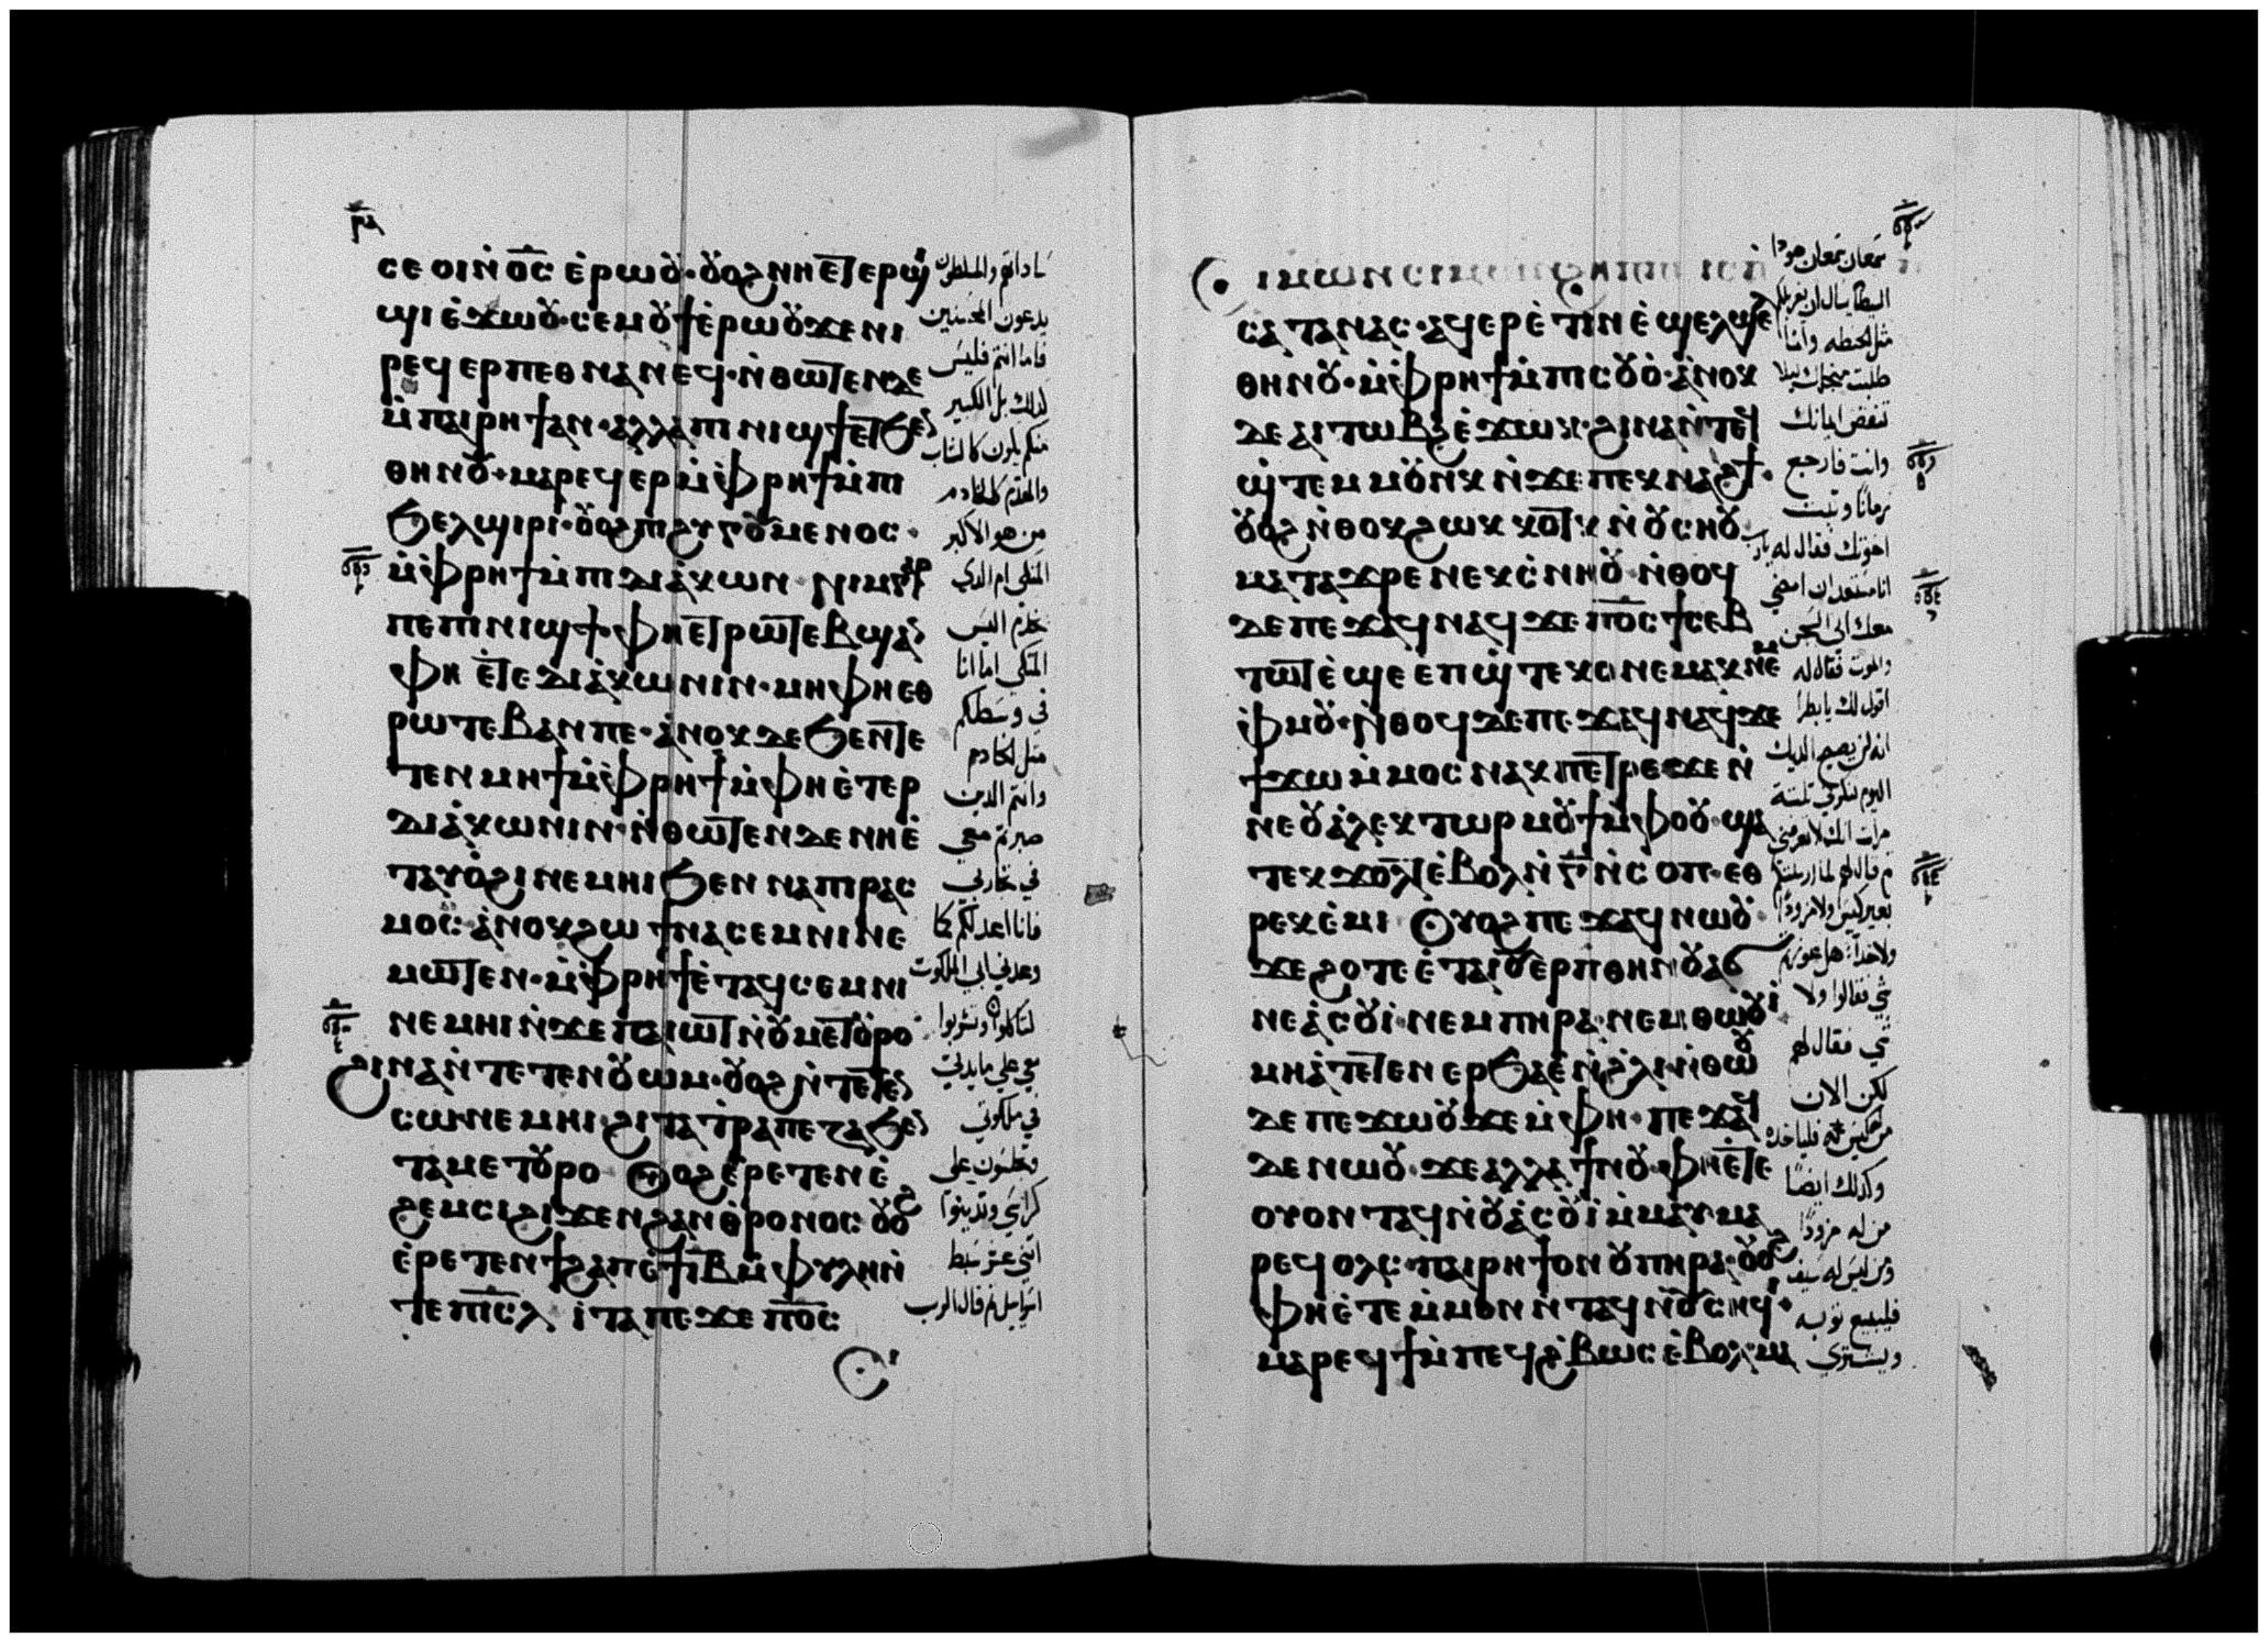 ⲥⲉ ⲟⲓⲛ̀ⲟ̅ⲥ̅ ⲉ̀ⲣⲱⲟⲩ· ⲟⲩⲟϩ ⲛⲏⲉⲧⲉⲣϣⲓ
ϣⲓ ⲉ̀ϫⲱⲟⲩ· ⲥⲉⲙⲟⲩϯ ⲉ̀ⲣⲱⲟⲩ ϫⲉ ⲛⲓ
ⲣⲉϥⲉⲣⲡⲉⲑⲛⲁⲛⲉϥ· ⲛ̀ⲑⲱⲧⲉⲛ ⲇⲉ
ⲙ̀ⲡⲁⲓⲣⲏϯ ⲁⲛ· ⲁⲗⲗⲁ ⲡⲓⲛⲓϣϯ ⲉⲧϧⲉⲛ
ⲑⲏⲛⲟⲩ· ⲙⲁⲣⲉϥⲉⲣ ⲙ̀ⲫⲣⲏϯ ⲙ̀ⲡⲓ
ϧⲉⲗϣⲓⲣⲓ· ⲟⲩⲟϩ ⲡⲓϩⲩⲅⲟⲩⲙⲉⲛⲟⲥ·
ⲙ̀ⲫⲣⲏϯ ⲙ̀ⲡⲓⲇⲓⲁ̀ⲕⲱⲛ· ⲛⲓⲙ ⲅⲁⲣ
ⲡⲉ ⲡⲓⲛⲓϣϯ· ⲫⲏⲉⲧⲣⲱⲧⲉⲃ ϣⲁⲛ
ⲫⲏ ⲉ̀ⲧⲉ ⲇⲓⲁ̀ⲕⲱⲛⲓⲛ· ⲙⲏ ⲫⲏⲉⲑ
ⲣⲱⲧⲉⲃ ⲁⲛ ⲡⲉ· ⲁ̀ⲛⲟⲕ ⲇⲉ ϧⲉⲛⲧⲉ
ⲧⲉⲛⲙⲏϯ ⲙ̀ⲫⲣⲏϯ ⲙ̀ⲫⲏⲉ̀ⲧⲉⲣ
ⲇⲓⲁ̀ⲕⲱⲛⲓⲛ· ⲛ̀ⲑⲱⲧⲉⲛ ⲇⲉ ⲛⲏⲉ̀
ⲧⲁⲩⲟ̀ϩⲓ ⲛⲉⲙⲏⲓ ϧⲉⲛ ⲛⲁⲡⲓⲣⲁⲥ
ⲙⲟⲥ· ⲁ̀ⲛⲟⲕ ϩⲱ ϯⲛⲁⲥⲉⲙⲛⲓ ⲛⲉ
ⲙⲱⲧⲉⲛ· ⲙ̀ⲫⲣⲏϯ ⲉ̀ⲧⲁϥⲥⲉⲙⲛⲓ
ⲛⲉⲙⲏⲓ ⲛ̀ϫⲉ ⲡⲁⲓⲱⲧ ⲛ̀ⲟⲩⲙⲉⲧⲟⲩⲣⲟ·
ϩⲓⲛⲁ ⲛ̀ⲧⲉⲧⲉⲛⲟⲩⲱⲙ· ⲟⲩⲟϩ ⲛ̀ⲧⲉⲧⲉⲛ
ⲥⲱ ⲛⲉⲙⲏⲓ· ϩⲓ ⲧⲁⲧⲣⲁⲡⲉⲍⲁ ϧⲉⲛ
ⲧⲁⲙⲉⲧⲟⲩⲣⲟ ⲟⲩⲟϩ ⲉ̀ⲣⲉⲧⲉⲛⲉ̀
ϩⲉⲙⲥⲓ ϩⲓϫⲉⲛ ϩⲁⲛⲑ̀ⲣⲟⲛⲟⲥ ⲟⲩⲟϩ
ⲉ̀ⲣⲉⲧⲉⲛϯϩⲁⲡ ⲉ̀ϯⲓ̅ⲃ̅ ⲙ̀ⲫⲩⲗⲏ ⲛ̀
ⲧⲉ ⲡⲓ̅ⲥ̅ⲗ̅ ⲓⲧⲁ ⲡⲉϫⲉ ⲡ̅ⲟ̅ⲥ̅
ⲥ̀
ساداتهم والمسلطون
يدعون المحسنين
فاما انتم فليس
كذلك بل الكبير
منكم يكون كالشاب
والمقدم كالخادم
من هو الاكبر
المتكى ام الذي
يخدم اليس
المتكى اما انا
في وسطكم
مثل الخادم
وانتم الذين
صبرتم معي
في تجاربي
فانا اعد لكم كما
وعدني ابي الملكوت
لتاكلوا وتشربوا
معي على مايدتي
في ملكوتي
وتجلسون على
كراسي وتدينوا
اثني عشر سبط
اسراييل ثم قال الرب
ⲥⲓⲙⲱⲛ ⲥⲓⲙⲱⲛ
ⲥⲁⲧⲁⲛⲁⲥ· ⲁϥⲉⲣⲉ̀ⲧⲓⲛ ⲉ̀ϣⲉⲗϣⲉⲗ
ⲑⲏⲛⲟⲩ· ⲙ̀ⲫⲣⲏϯ ⲙ̀ⲡⲓⲥⲟⲩⲟ̀· ⲁ̀ⲛⲟⲕ
ⲇⲉ ⲁⲓⲧⲱⲃϩ ⲉ̀ϫⲱⲕ· ϩⲓⲛⲁ ⲛ̀ⲧⲉϥ
ϣ̀ⲧⲉⲙⲙⲟⲩⲛⲕ ⲛ̀ϫⲉ ⲡⲉⲕⲛⲁϩϯ·
ⲟⲩⲟϩ ⲛ̀ⲑⲟⲕ ϩⲱⲕ ⲕⲟⲧⲕ ⲛ̀ⲟⲩⲥⲏⲟⲩ
ⲙⲁⲧⲁϫⲣⲉ ⲛⲉⲕⲥ̀ⲛⲏⲟⲩ· ⲛ̀ⲑⲟϥ
ⲇⲉ ⲡⲉϫⲁϥ ⲛⲁϥ ϫⲉ ⲡ̅ⲟ̅ⲥ̅ ϯⲥⲉⲃ
ⲧⲱⲧ ⲉ̀ϣⲉ ⲉⲡϣ̀ⲧⲉⲕⲟ ⲛⲉⲙⲁⲕ ⲛⲉⲙ
ⲫ̀ⲙⲟⲩ· ⲛ̀ⲑⲟϥ ⲇⲉ ⲡⲉϫⲁϥ ⲛⲁϥ ϫⲉ
ϯϫⲱ ⲙ̀ⲙⲟⲥ ⲛⲁⲕ ⲡⲉⲧⲣⲉ ϫⲉ ⲛ̀
ⲛⲉ ⲟⲩⲁ̀ⲗⲉⲕⲧⲱⲣ ⲙⲟⲩϯ ⲙ̀ⲫⲟⲟⲩ· ϣⲁ
ⲧⲉⲕϫⲟⲗⲧ ⲉ̀ⲃⲟⲗ ⲛ̀ⲅ̅ ⲛ̀ⲥⲟⲡ· ⲉⲑ
ⲣⲉⲕⲉ̀ⲙⲓ ⲟⲩⲟϩ ⲡⲉϫⲁϥ ⲛⲱⲟⲩ·
ϫⲉ ϩⲟⲧⲉ ⲉ̀ⲧⲁⲓⲟⲩⲉⲣⲡ ⲑⲏⲛⲟⲩ ⲁϭ
ⲛⲉ ⲁ̀ⲥⲟⲩⲓ̀· ⲛⲉⲙ ⲡⲏⲣⲁ· ⲛⲉⲙ ⲑⲱⲟⲩⲓ̀
ⲙⲏ ⲁ̀ⲧⲉⲧⲉⲛⲉⲣϧⲁⲉ̀ ⲛ̀ϩ̀ⲗⲓ· ⲛ̀ⲑⲱⲟⲩ
ⲇⲉ ⲡⲉϫⲱⲟⲩ ϫⲉ ⲙ̀ⲫⲏ· ⲡⲉϫⲁϥ
ⲇⲉ ⲛⲱⲟⲩ· ϫⲉ ⲁⲗⲗⲁ ϯⲛⲟⲩ· ⲫⲏⲉ̀ⲧⲉ
ⲟⲩⲟⲛ ⲧⲁϥ ⲛ̀ⲟⲩⲁ̀ⲥⲟⲩⲓ̀ ⲙ̀ⲙⲁⲩ ⲙⲁ
ⲣⲉϥⲟⲗⲥ· ⲡⲁⲓⲣⲏϯ ⲟⲛ ⲟⲩⲡⲏⲣⲁ· ⲟⲩⲟϩ
ⲫⲏⲉ̀ⲧⲉ ⲙ̀ⲙⲟⲛ ⲛ̀ⲧⲁϥ ⲛ̀ⲟⲩⲥⲏϥⲓ·
ⲙⲁⲣⲉϥϯ ⲙ̀ⲡⲉϥϩ̀ⲃⲱⲥ ⲉ̀ⲃⲟⲗ· ⲙ
سمعان سمعان هوذا
الشيطان سال ان يغربلكم
مثل الحنطه وانا
طلبت من اجلك ليلا
تنقض ايمانك
وانت فارجع
زمانا وثبت
اخوتك فقال له يارب
انا مستعد ان امضي
معك الى السجن
والموت فقال له
اقول لك يا بطرس
انه لن يصيح الديك
اليوم تنكرني ثلثة
مرات انك لا تعرفني
ثم قال لهم لما ارسلتكم
بغير كيس ولا مزود
ولا حذا هل عوزتم
شي فقالوا ولا
شي فقال لهم
لكن الان
من له كيس فلياخذه
وكذلك ايضا
من له مزود
ومن ليس له سيف
فليبيع ثوبه
ويشتري